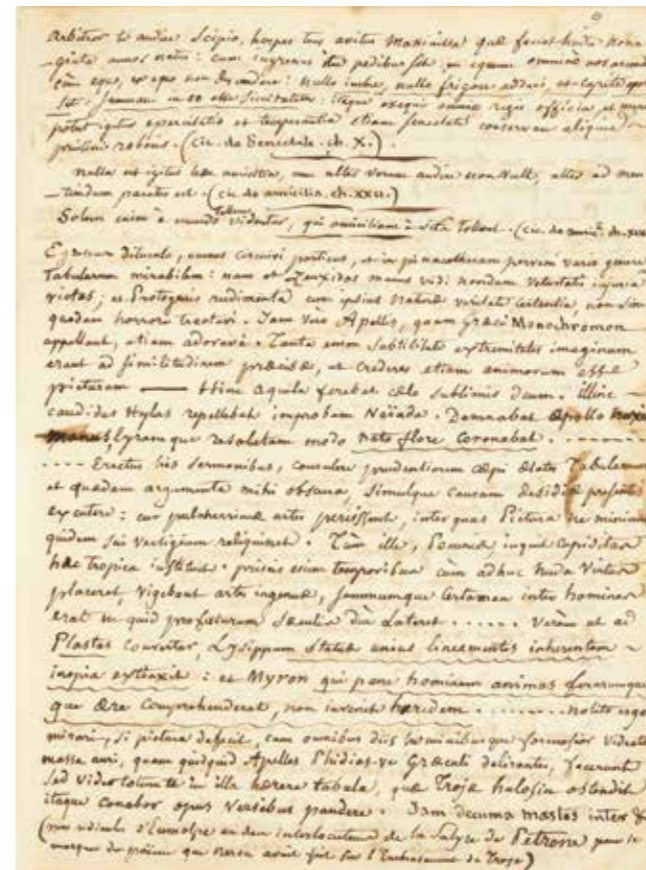 arbitror te audire Scipio, hospes tuus avitus Masinissa quæ faciat hodie nona
-ginta annos natus: cum ingressus iter pedibus sit, in equum omnino non ascend
cùm equo, ex equo non descendere: nullo imbre, nullo frigore adduci, ut capite ope
sit: summam in eo esse siccitatem: itaque exequi omnia regis officia, et mun
potest igitur exercitatio et temperantia etiam senectuti conservare aliquid
pristini roboris. (cic. de Senectute. ch. X.)
nulla est igitur hæc amicitia, cum alter verum audire non vult, alter ad men
-tiendum paratus est. (cic. de amicitia, ch. XXVI.)
Solem enim è mundo tollere videntur, qui amicitiam è vita tollunt. (cic. de amic. ch.
dilucato, omnes circuivi porticus, et in pinacothecam perveni vario genere
tabularum mirabilem: nam et Zeuxidos manus vidi nondum vetustatis injuria
victas; et Protogenis rudimenta cum ipsius naturæ veritate certantia, non sine
quodam horrore tractavi. Jam vero Apellis, quam Græci Monochromon
appellant, etiam adoravi. Tanta enim subtilitate extremitates imaginum
erant ad similitudinem præcisæ, ut crederes etiam animorum esse
picturam —— Hinc aquila ferebat cælo sublimis deum. illinc —
candidus Hylas repellebat improbam Naïada. Damnabat Apollo noxia
manus, lyramque resolutam modo nato flore coronabat. . . . . . . .
. . . . Erectus his sermonibus, consulere prudentiorum cœpi ætates Tabularum
et quædam argumenta mihi obscura, simulque causam desidiæ præsentis
excutere: cur pulcherrimæ artes periissent, inter quas Pictura ne minimum
quidem sui vestigium reliquisset. Tùm ille, Pecuniæ, inquit cupiditas
hæc tropica instituit. priscis enim temporibus cùm adhuc nuda Virtus
placeret, vigebant artes ingenuæ, summumque certamen inter homines
erat ne quid profuturum sæculis diù lateret . . . . . . Verùm ut ad
Plastas convertar, Lysippum statuæ unius lineamentis inhærentem ~
inopia extinxit: et Myron qui pene hominum animas ferarumque
que ære comprehenderat, non invenit hæredem . . . . . . . nolito ergo
mirari, si pictura defecit, cum omnibus diis hominibusque formosior videatur
massa auri, quam quidquid Apelles Phidias-ve Græculi delirantes, fecerunt
Sed video totum te in illa hærere tabula, quæ Trojæ halosin ostendit
itaque conabor opus versibus pandere. Jam decuma mæstos inter &
(vers ridicule d'Eumolpe un des interlocuteurs de la Satyre de Petrone pour se
moquer du poëme que Neron avoit fait sur l'Embrasement de Troye)